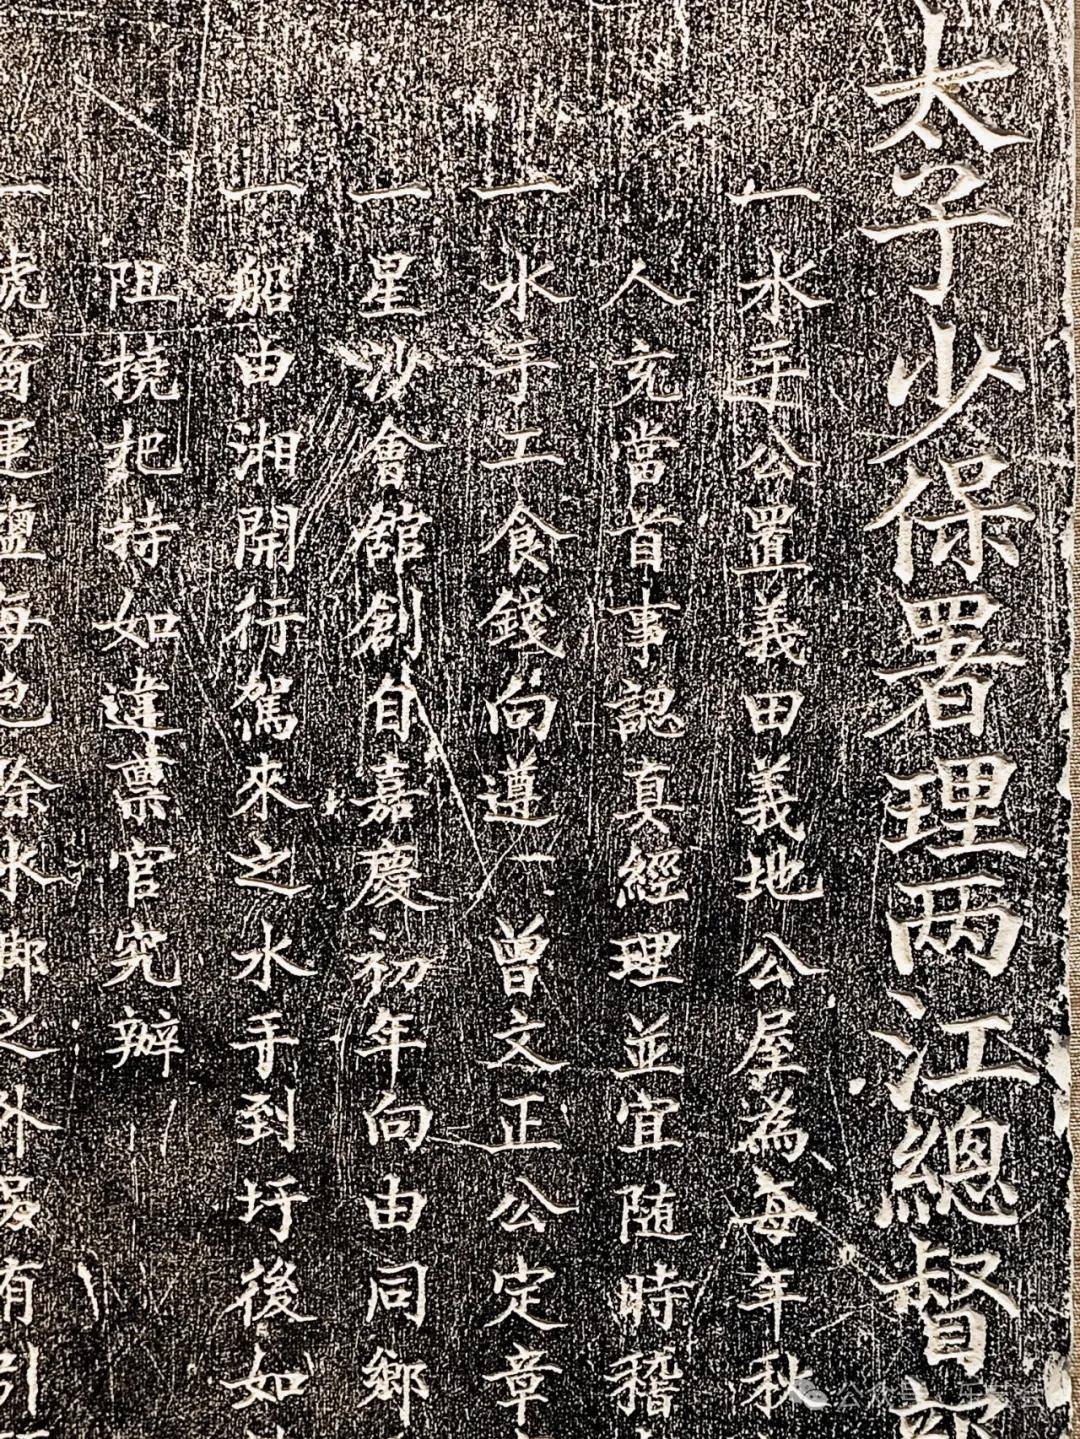 太子少保署理两江總督部
一水手公置義田義地公屋為每年秋
人充當首事認真經理並宜随時稽
一水手工食錢向遵一曾文正公定章
一星沙會館創自嘉慶初年向由同鄉
一船由湘開行駕來之水手到圩後如
阻撓把持如違禀官究辦
一號商運鹽每包除水脚之外另有引
公众号